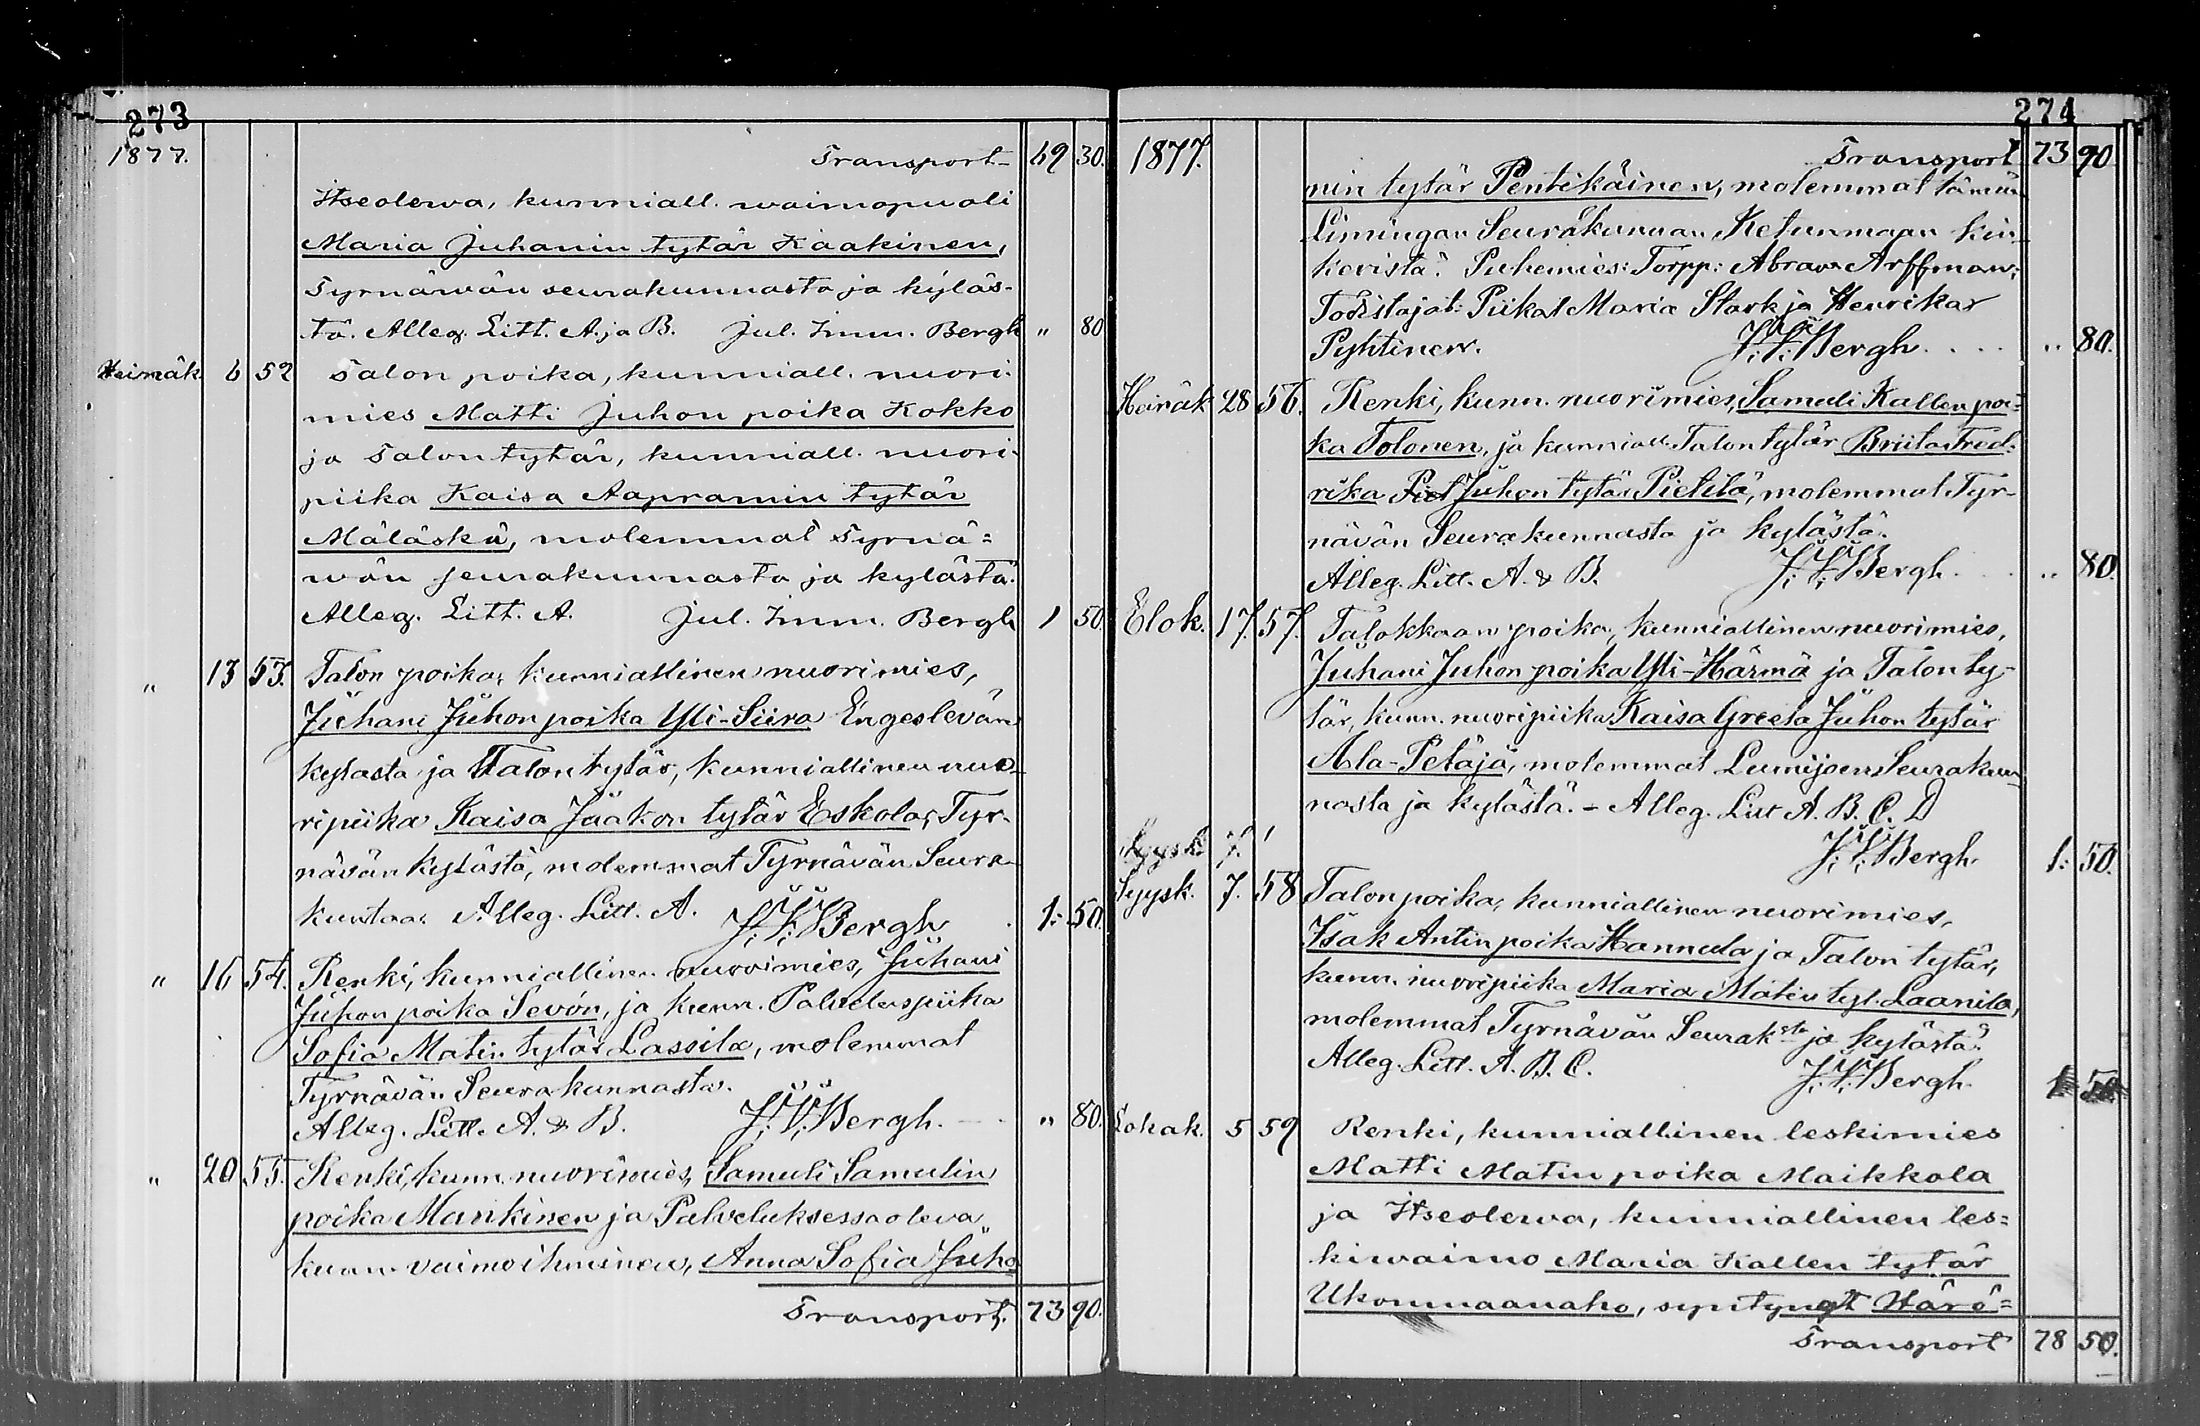 273
1877. Transport 69 30.
Itseolewa, kunniall. waimopuoli
Maria Juhanin tytär Kaakinen,
Tyrnäwän seurakunnasta ja kyläs-
tä. Alleg. Litt. A. ja B. Jul. Imm. Bergh " 80
Heinäk. 6 52 Talon poika, kunniall. nuori-
mies Matti Juhon poika Kokko
ja Talontytär, kunniall. nuori-
piika Kaisa Aapramin tytär
Mäläskä, molemmat Tyrnä=
wän seurakunnasta ja kylästä.
Alleg. Litt. A. Jul. Imm. Bergh 1 50.
" 13 53. Talon poika, kunniallinen nuorimies,
Juhani Juhon poika Yli-Siira Engeslevän
kylästa ja Talon tytär, kunniallinen nuo-
ripiika Kaisa Jaakon tytär Eskola, Tyr-
nävän kylästä, molemmat Tyrnävän Seura-
kuntaa. Alleg. Litt. A. J. I. Bergh 1: 50.
" 16 54. Renki, kunniallinen nuorimies, Juhani
Juhon poika Sevón, ja kunn. Palveluspiika
Sofia Matin tytär Lassila, molemmat
Tyrnävän Seurakunnasta.
Alleg. Litt. A. & B. J. I. Bergh. " 80.
" 20 55. Renki, kunn. nuorimies, Samuli Samulin
poika Mankinen ja Palveluksessa oleva
kunn. vaimoihminen, Anna Sofia Juha
Transport. 73 90.
274
1877. Transport 73 90.
nin tytär Pentikäinen, molemmat tämän
Limingan Seurakunnan Ketunmaan kin-
keristä. Puhemies: Torpp: Abram Arffman;
Todistajat: Piikat Maria Stark ja Henrika
Pyhtinen. J. I. Bergh. " 80.
Heinäk 28 56. Renki, kunn. nuorimies, Samuli Kallen poi-
ka Tolonen, ja kunniall. Talon tytär Briita Fred-
rika Piet Juhon tytär Pietilä, molemmat Tyr-
nävän Seurakunnasta ja kylästä.
Alleg. Litt. A. & B. J. I. Bergh. " 80.
Elok. 17 57. Talokkaan poika, kunniallinen nuorimies,
Juhani Juhon poika Yli-Härmä ja Talon ty-
tär, kunn. nuoripiika Kaisa Greeta Juhon tytär
Ala-Petäjä, molemmat Lumijoen Seurakun-
nasta ja kylästä. - Alleg. Litt A. B. C. D
Syysk. 7. J. I. Bergh. 1: 50.
Syysk. 7. 58 Talon poika, kunniallinen nuorimies,
Isak Antin poika Hannula ja Talon tytär,
kunn. nuoripiika Maria Matin tyt. Laanila,
molemmat Tyrnävän Seurak:sta ja kylästä.
Alleg. Litt. A. B. C. J. I. Bergh. 1 50.
Lokak. 5 59 Renki, kunniallinen leskimies
Matti Matin poika Maikkola
ja Itseolewa, kunniallinen les=
kiwaimo Maria Kallen tytär
Ukonmaanaho, syntyngt Härö=
Transport 78 50.